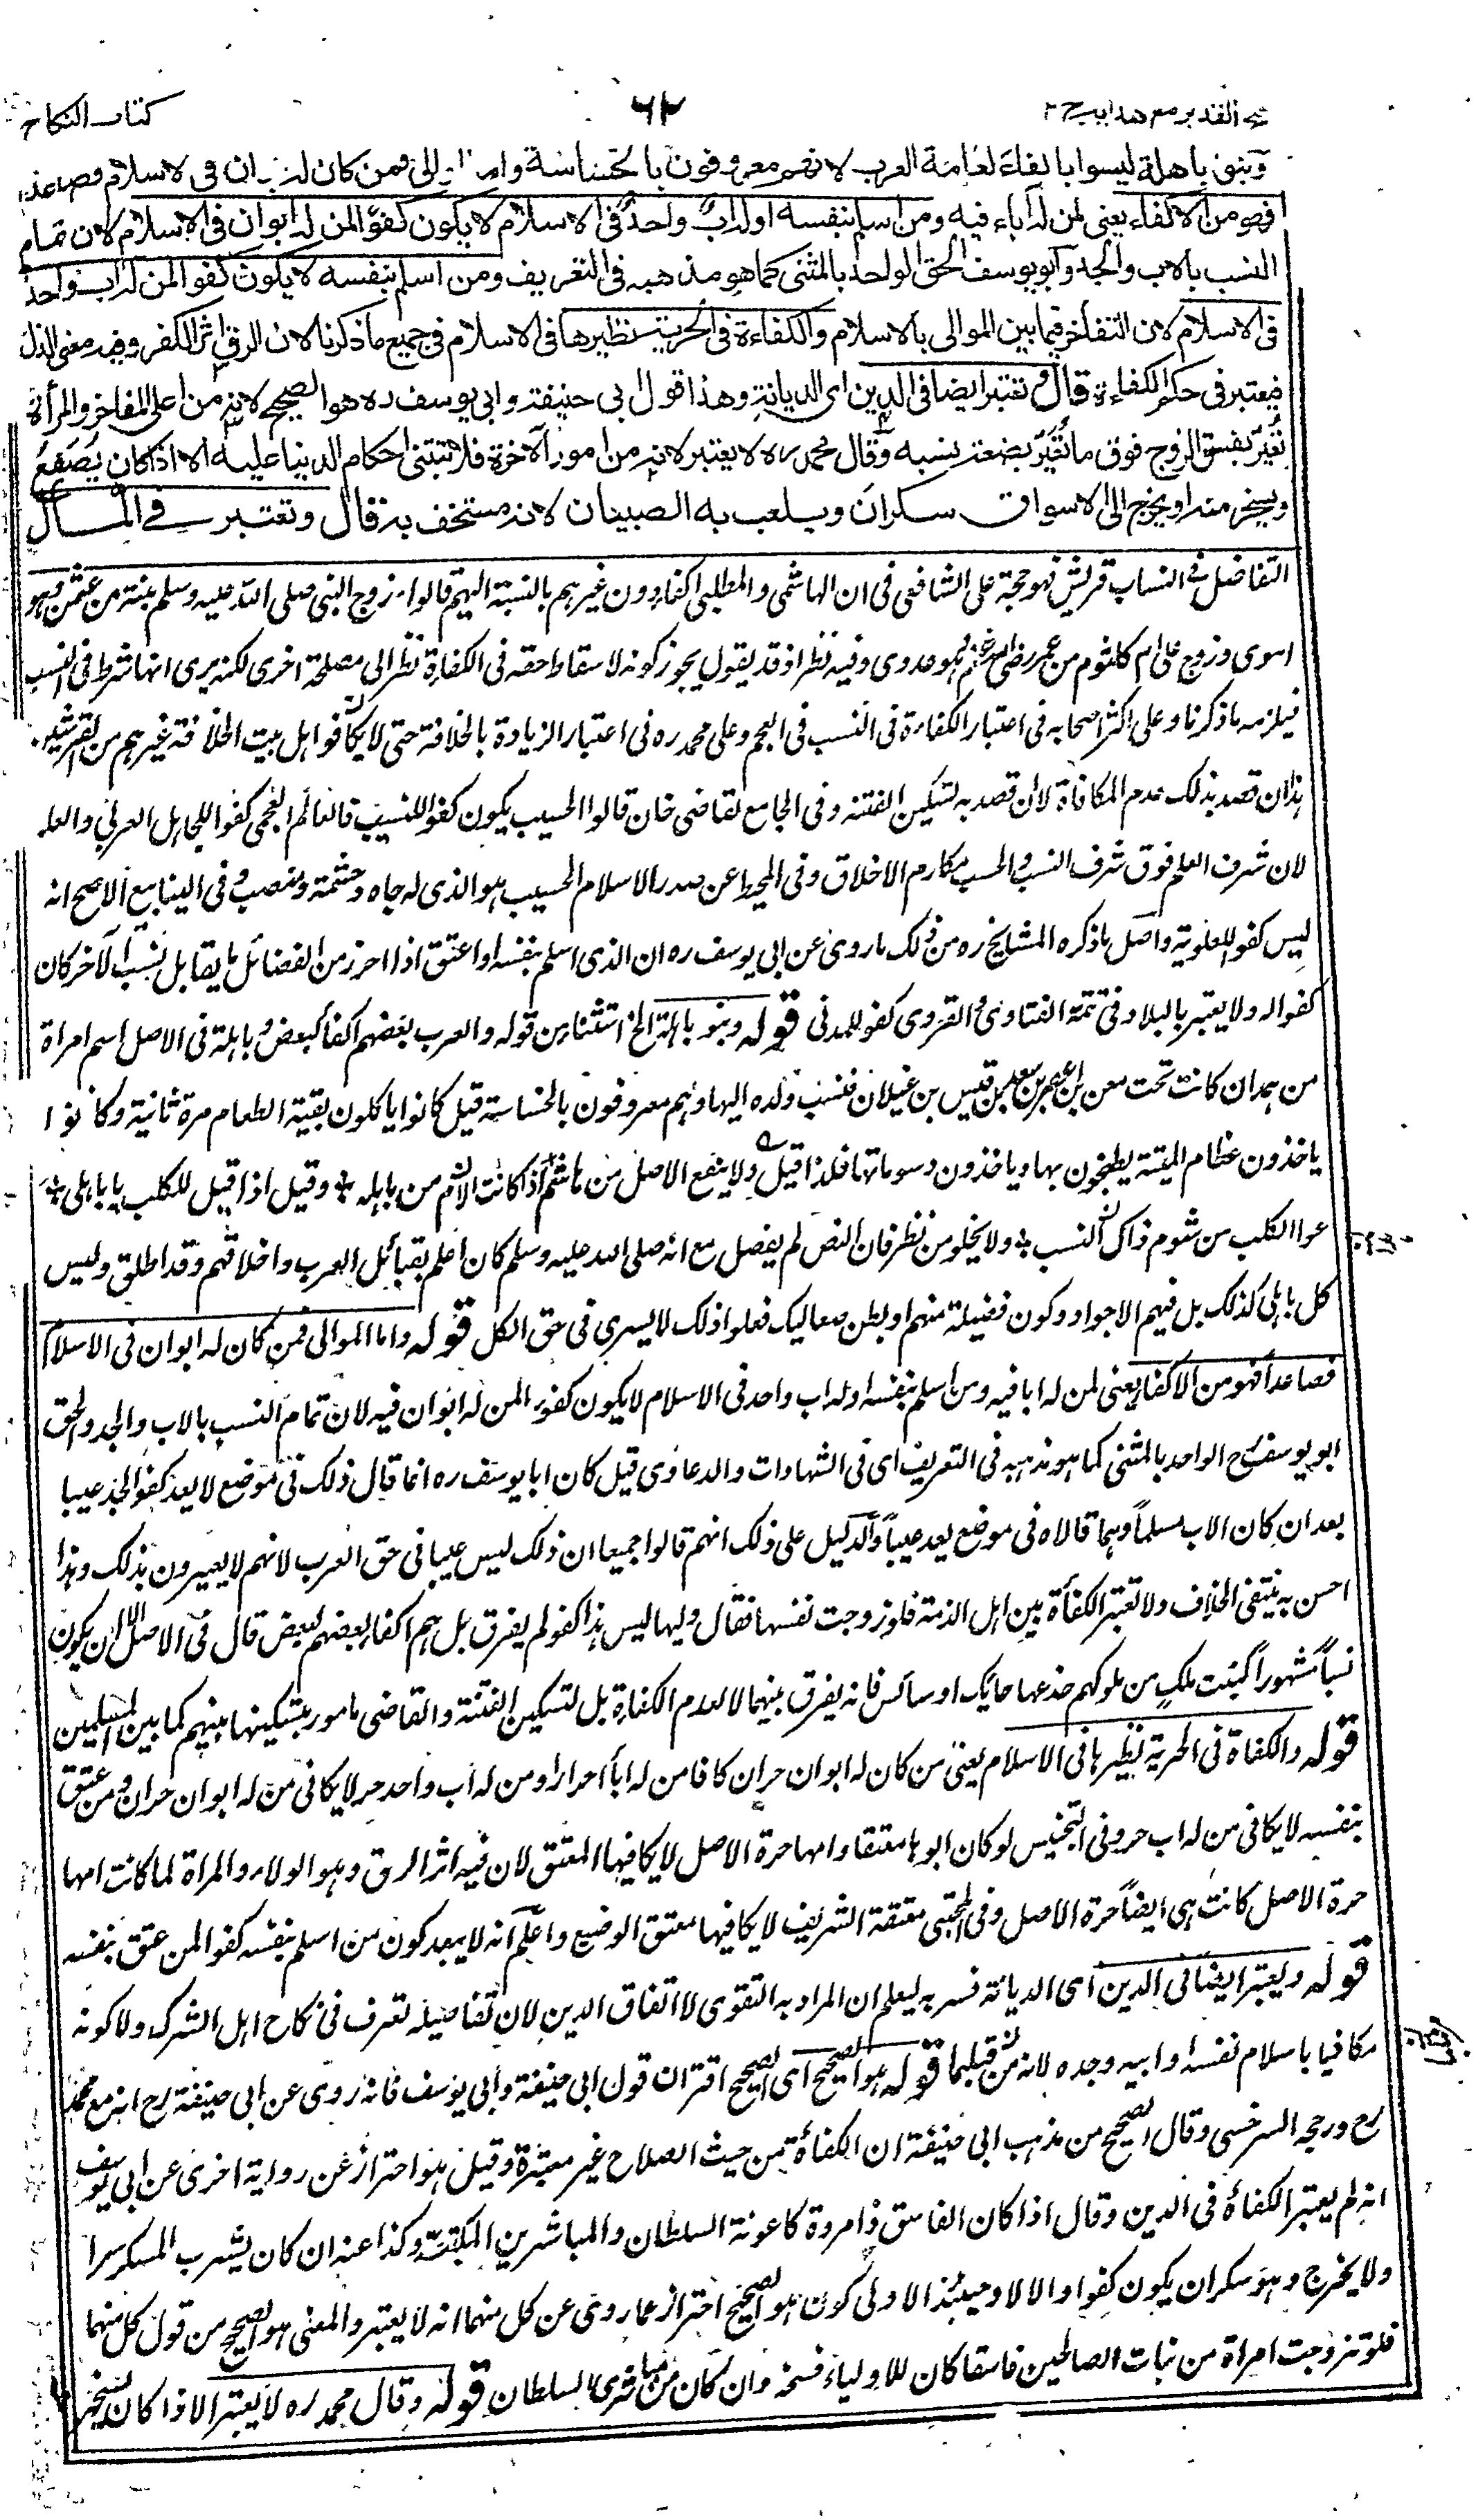 فتح القدير مع هدايه ج ٢ ٦٢ كتاب النكاح
وبنو باهلة ليسوا باكفاء لعامة العرب لانهم معروفون بالخساسة واما الموالى فمن كان له ابوان فى الاسلام فصاعدا
فهو من الاكفاء يعنى لمن له آباء فيه ومن اسلم بنفسه او له اب واحد فى الاسلام لا يكون كفوا لمن له ابوان فى الاسلام لان تمام
النسب بالاب والجد وابو يوسف الحق الواحد بالمثنى كما هو مذهبه فى التعريف ومن اسلم بنفسه لا يكون كفوا لمن له اب واحد
فى الاسلام لان التفاخر فيما بين الموالى بالاسلام والكفاءة فى الحرية نظيرها فى الاسلام فى جميع ما ذكرنا لان الرق اثر الكفر وفيه معنى الذل
فيعتبر فى حكم الكفاءة قال وتعتبر ايضا فى الدين اى الديانة وهذا قول ابى حنيفة وابى يوسف ره هو الصحيح لانه من اعلى المفاخر والمرأة
تُعَيَّر بفسق الزوج فوق ما تُعَيَّر بضعة نسبه وقال محمد ره لا يعتبر لانه من امور الآخرة فلا تبتنى احكام الدنيا عليه الا اذا كان يُصفَع
ويسخر منه او يخرج الى الاسواق سكران ويلعب به الصبيان لانه مستخف به قال وتعتبر فى المال
التفاضل فى انساب قريش فهو حجة على الشافعى فى ان الهاشمى والمطلبى اكفاء دون غيرهم بالنسبة اليهم قالوا زوج النبى صلى الله عليه وسلم بنته من عثمن وهو
اموى وزوج على ام كلثوم من عمر رضى الله عنهم وهو عدوى وفيه نظر اذ قد يقول يجوز كونه لاسقاط حقه فى الكفاءة نظرا الى مصلحة اخرى لكنه يرى انها شرط فى النسب
فيلزمه ما ذكرنا وعلى اكثر اصحابه فى اعتبار الكفاءة فى النسب فى العجم وعلى محمد ره فى اعتبار الزيادة بالخلافة حتى لا يكافوا اهل بيت الخلافة غيرهم من القرشيين
هذا ان قصد بذلك عدم المكافاة لا ان قصد به تسكين الفتنة وفى الجامع لقاضى خان قالوا الحسيب يكون كفوا للنسيب فالعالم العجمى كفو للجاهل العربى والعلوية
لان شرف العلم فوق شرف النسب والحسب مكارم الاخلاق وفى المحيط عن صدر الاسلام الحسيب هو الذى له جاه وحشمة ومنصب وفى الينابيع الاصح انه
ليس كفوا للعلوية واصل ما ذكره المشايخ ره من ذلك ما روى عن ابى يوسف ره ان الذى اسلم بنفسه او اعتق اذا احرز من الفضائل ما يقابل نسب الآخر كان
كفوا له ولا يعتبر بالبلاد وفى تتمة الفتاوى القروى كفو للمدنى قوله وبنو باهلة الخ استثناء من قوله والعرب بعضهم اكفاء لبعض وباهلة فى الاصل اسم امراة
من همدان كانت تحت معن بن اعصر بن سعد بن قيس بن عيلان فنسب ولده اليها وهم معروفون بالخساسة قيل كانوا ياكلون بقية الطعام مرة ثانية وكانوا
ياخذون عظام الميتة يطبخون بها وياخذون دسوماتها فلذا قيل ولا ينفع الاصل من هاشم اذا كانت النفس من باهله وقيل اذا قيل للكلب يا باهلى
عوا الكلب من شوم ذاك النسب ولا يخلو من نظر فان النص لم يفصل مع انه صلى الله عليه وسلم كان اعلم بقبائل العرب واخلاقهم وقد اطلق وليس
كل باهلى كذلك بل فيهم الاجواد وكون فصيلة منهم او بطن صعاليك فعلوا ذلك لا يسرى فى حق الكل قوله واما الموالى فمن كان له ابوان فى الاسلام
فصاعدا فهو من الاكفاء يعنى لمن له ابا فيه ومن اسلم بنفسه او له اب واحد فى الاسلام لا يكون كفوا لمن له ابوان فيه لان تمام النسب بالاب والجد والحق
ابو يوسف رح الواحد بالمثنى كما هو مذهبه فى التعريف اى فى الشهادات والدعاوى قيل كان ابا يوسف ره انما قال ذلك فى موضع لا يعد كفر الجد عيبا
بعد ان كان الاب مسلماً وهما قالاه فى موضع يعد عيباً والدليل على ذلك انهم قالوا جميعا ان ذلك ليس عيبا فى حق العرب لانهم لا يعيرون بذلك وهذا
احسن به ينتفى الخلاف ولا تعتبر الكفاءة بين اهل الذمة فلو زوجت نفسها فقال وليها ليس هذا كفوا لم يفرق بل هم اكفاء بعضهم لبعض قال فى الاصل الا ان يكون
نسباً مشهوراً كبنت ملك من ملوكهم خدعها حائك او سائس فانه يفرق بينهما لا لعدم الكفاءة بل لتسكين الفتنة والقاضى مامور بتسكينها بينهم كما بين المسلمين
قوله والكفاءة فى الحرية نظيرها فى الاسلام يعنى من كان له ابوان حران كافا من له ابأ احرار او من له اب واحد حر لا يكافى من له ابوان حران ومن عتق
بنفسه لا يكافى من له اب حر وفى التجنيس لو كان ابوها معتقا وامها حرة الاصل لا يكافيها المعتق لان فيه اثر الرق وهو الولاء والمراة لما كانت امها
حرة الاصل كانت هى ايضاً حرة الاصل وفى المجتبى معتقة الشريف لا يكافيها معتق الوضيع واعلم انه لا يبعد كون من اسلم بنفسه كفوا لمن عتق بنفسه
قوله ويعتبر ايضا فى الدين اى الديانة فسر به ليعلم ان المراد به التقوى لا اتفاق الدين لان تفاصيله تعرف فى نكاح اهل الشرك ولا كونه
مكافيا باسلام نفسه او ابيه وجده لانه مر قبلها قوله هو الصحيح اى الصحيح اقتران قول ابى حنيفة وابى يوسف فانه روى عن ابى حنيفة رح انه مع محمد
رح ورجحه السرخسى وقال الصحيح من مذهب ابى حنيفة ان الكفاءة من حيث الصلاح غير معتبرة وقيل هو احتراز عن رواية اخرى عن ابى يوسف
انه لم يعتبر الكفاءة فى الدين وقال اذا كان الفاسق ذا مروة كاعونة السلطان والمباشرين المكسة وكذا عنه ان كان يشرب المسكر سرا
ولا يخرج وهو سكران يكون كفوا والا لا وحينئذ الاولى كون هو الصحيح احتراز عما روى عن كل منهما انه لا يعتبر والمعنى هو الصحيح من قول كل منهما
فلو تزوجت امراة من بنات الصالحين فاسقا كان للاولياء فسخه وان كان من مباشرى السلطان قوله وقال محمد ره لا يعتبر الا اذا كان يسخر